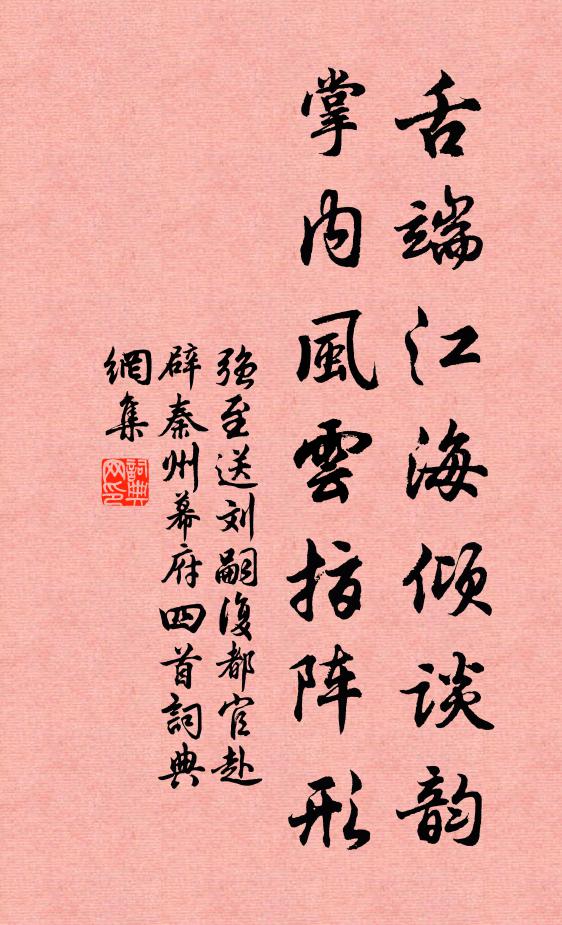 舌端江海倾谈韵
掌内風雲指阵形
强至送刘嗣復都官赴
辟秦州幕府四首詞典
網集
詞典
网印